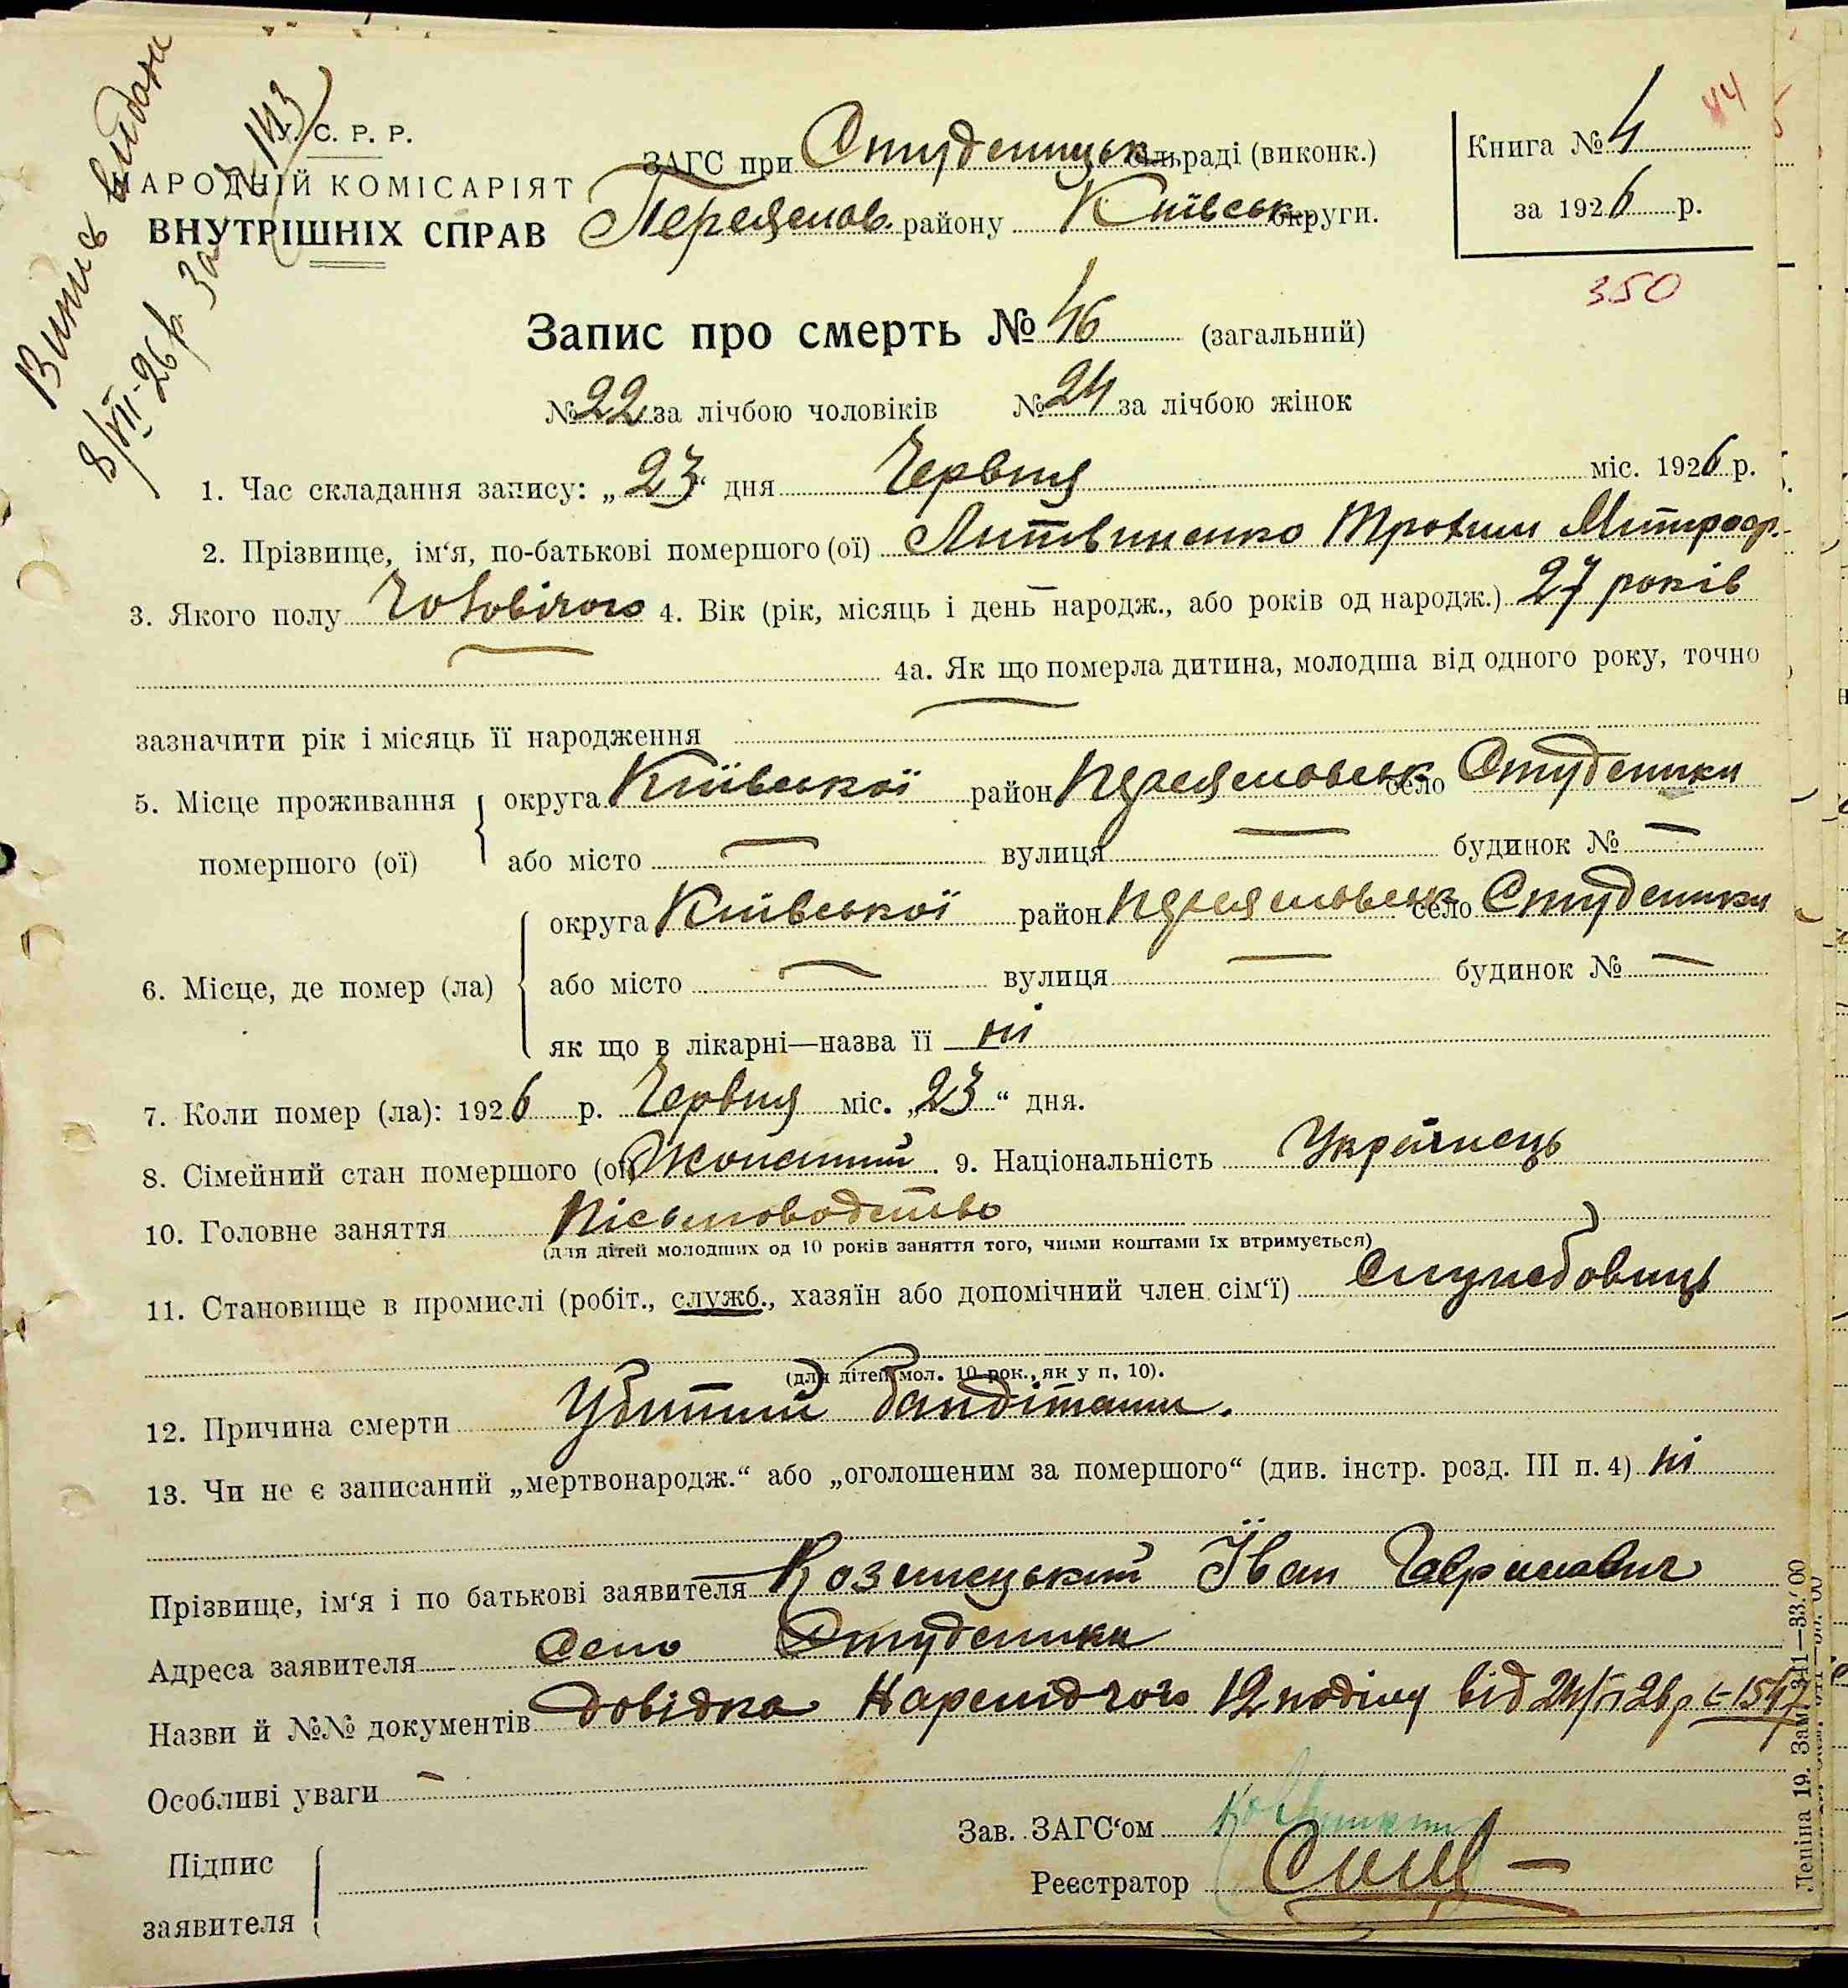 Витяг видани
8/VII-26 р. За № 143
У. С. Р. Р.
НАРОДНІЙ КОМІСАРІЯТ
ВНУТРІШНІХ СПРАВ
ЗАГС при Студеницьк. сільраді (виконк.)
Переяслов. району Київськ. округи.
Книга № 4
за 1926 р.
84
350
Запис про смерть № 46 (загальний)
№ 22 за лічбою чоловіків № 24 за лічбою жінок
1. Час складання запису: „23“ дня Червня міс. 1926 р.
2. Прізвище, ім‘я, по-батькові помершого (ої) Литвиненко Трохим Митроф.
3. Якого полу Чоловічого 4. Вік (рік, місяць і день народж., або років од народж.) 27 років
4а. Як що померла дитина, молодша від одного року, точно
зазначити рік і місяць її народження —
5. Місце проживання помершого (ої) округа Київської район Переясловськ село Студеники
або місто — вулиця — будинок № —
6. Місце, де помер (ла) округа Київської район Переясловськ село Студеники
або місто — вулиця — будинок № —
як що в лікарні—назва її ні
7. Коли помер (ла): 1926 р. Червня міс. „23“ дня.
8. Сімейний стан помершого (ої) Жонатий. 9. Національність Українець
10. Головне заняття Письмоводство
(для дітей молодших од 10 років заняття того, чиїми коштами їх втримується)
11. Становище в промислі (робіт., служб., хазяїн або допомічний член сім‘ї) Служебовиць
(для дітей мол. 10 рок., як у п. 10).
12. Причина смерти Убитий бандітами.
13. Чи не є записаний „мертвонародж.“ або „оголошеним за помершого“ (див. інстр. розд. III п. 4) ні
Прізвище, ім‘я і по батькові заявителя Іван Гаврилович
Адреса заявителя Село Студеники
Назви й №№ документів Довідка Нарслідчого 12 від 24/VI 26 р
Особливі уваги —
Зав. ЗАГС‘ом
Реєстратор
Підпис
заявителя
Леніна 19. Зам.